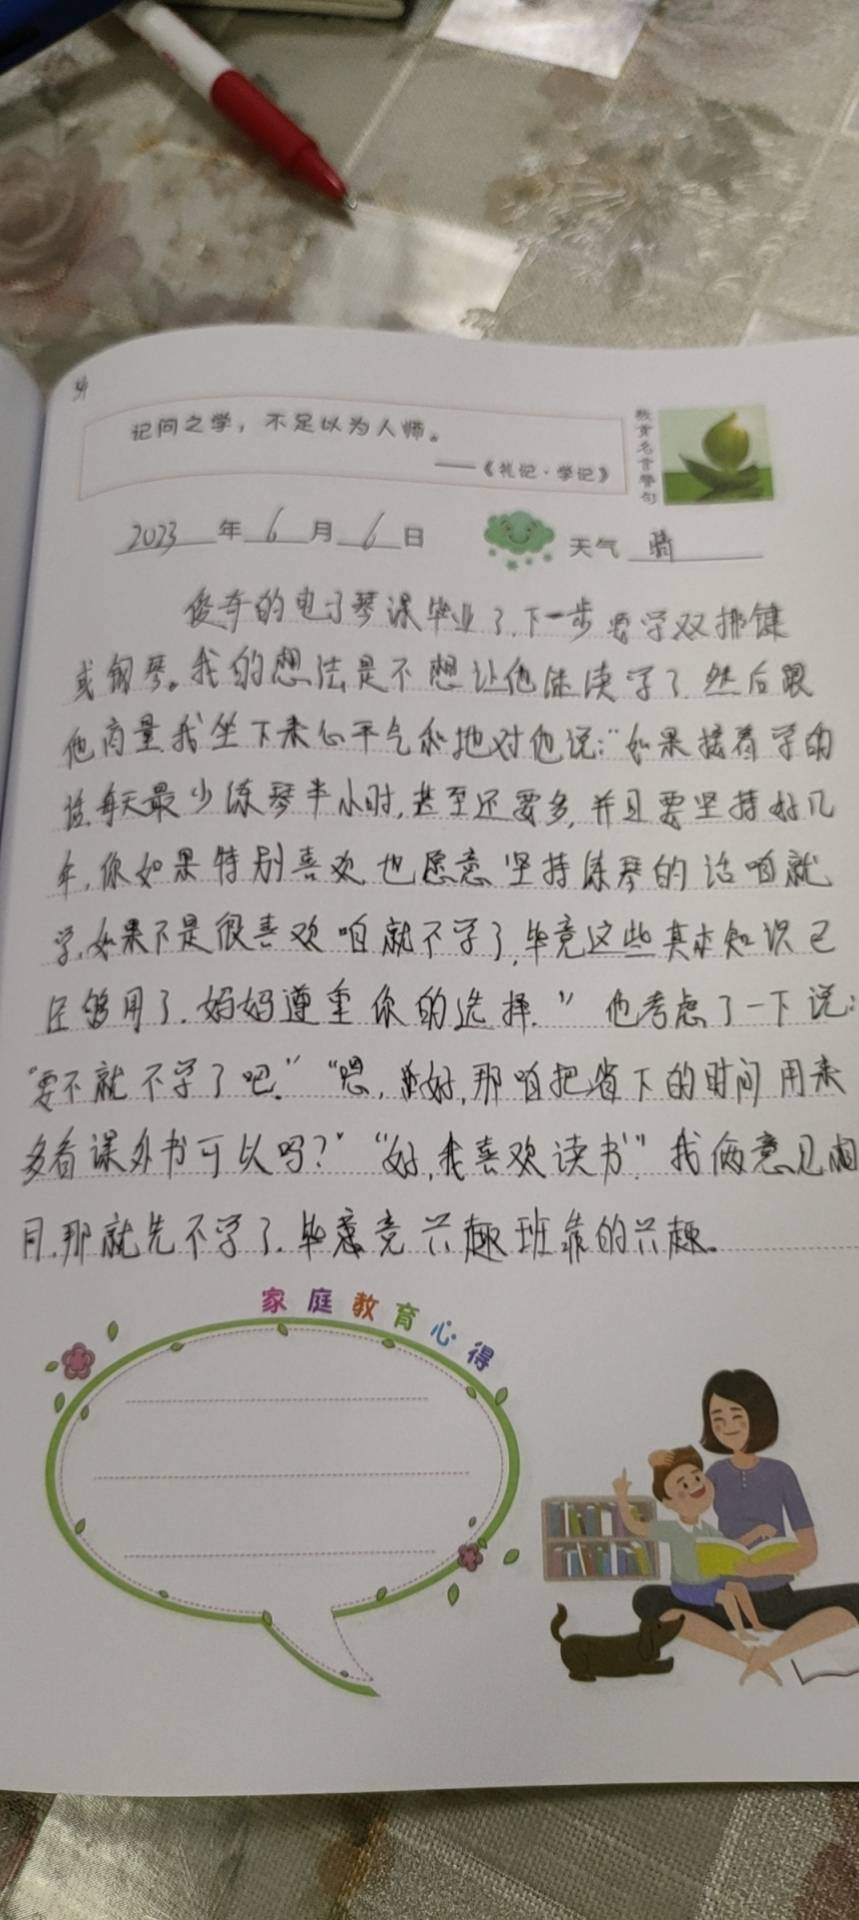 记问之学，不足以为人师。
——《礼记·学记》
教育名言警句
2023年6月6日 天气 晴
俊奇的电子琴课毕业了.下一步要学双排键
或钢琴。我的想法是不想让他继续学了.然后跟
他商量.我坐下来心平气和地对他说:“如果接着学的
话,每天最少练琴半小时,甚至还要多,并且要坚持好几
年,你如果特别喜欢也愿意坚持练琴的话咱就
学,如果不是很喜欢咱就不学了,毕竟这些基本知识已
经够用了.妈妈遵重你的选择.” 他考虑了一下说:
“要不就不学了吧.” “嗯,好,那咱把省下的时间用来
多看课外书可以吗?” “好,我喜欢读书”. 我俩意见相
同.那就先不学了.毕竟兴趣班靠的兴趣。
家庭教育心得